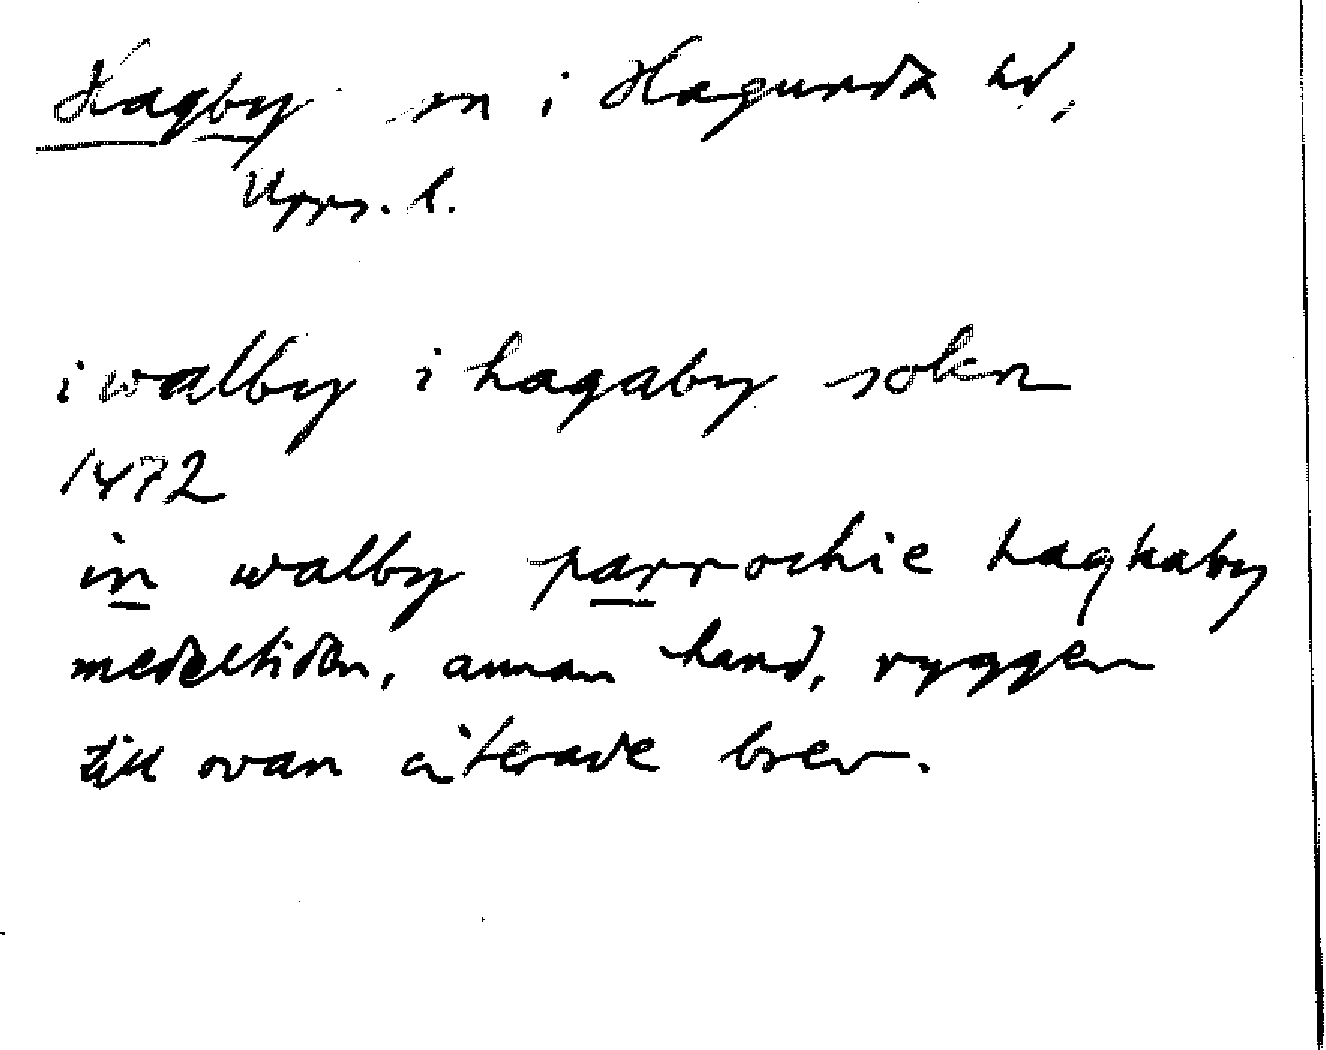 Hagby sn i Hagunda hd,
Upps. l.
i walby i hagaby sokn
1472
in walby parrochie haghaby
medeltiden, annan hand, ryggen
till ovan citerade brev.